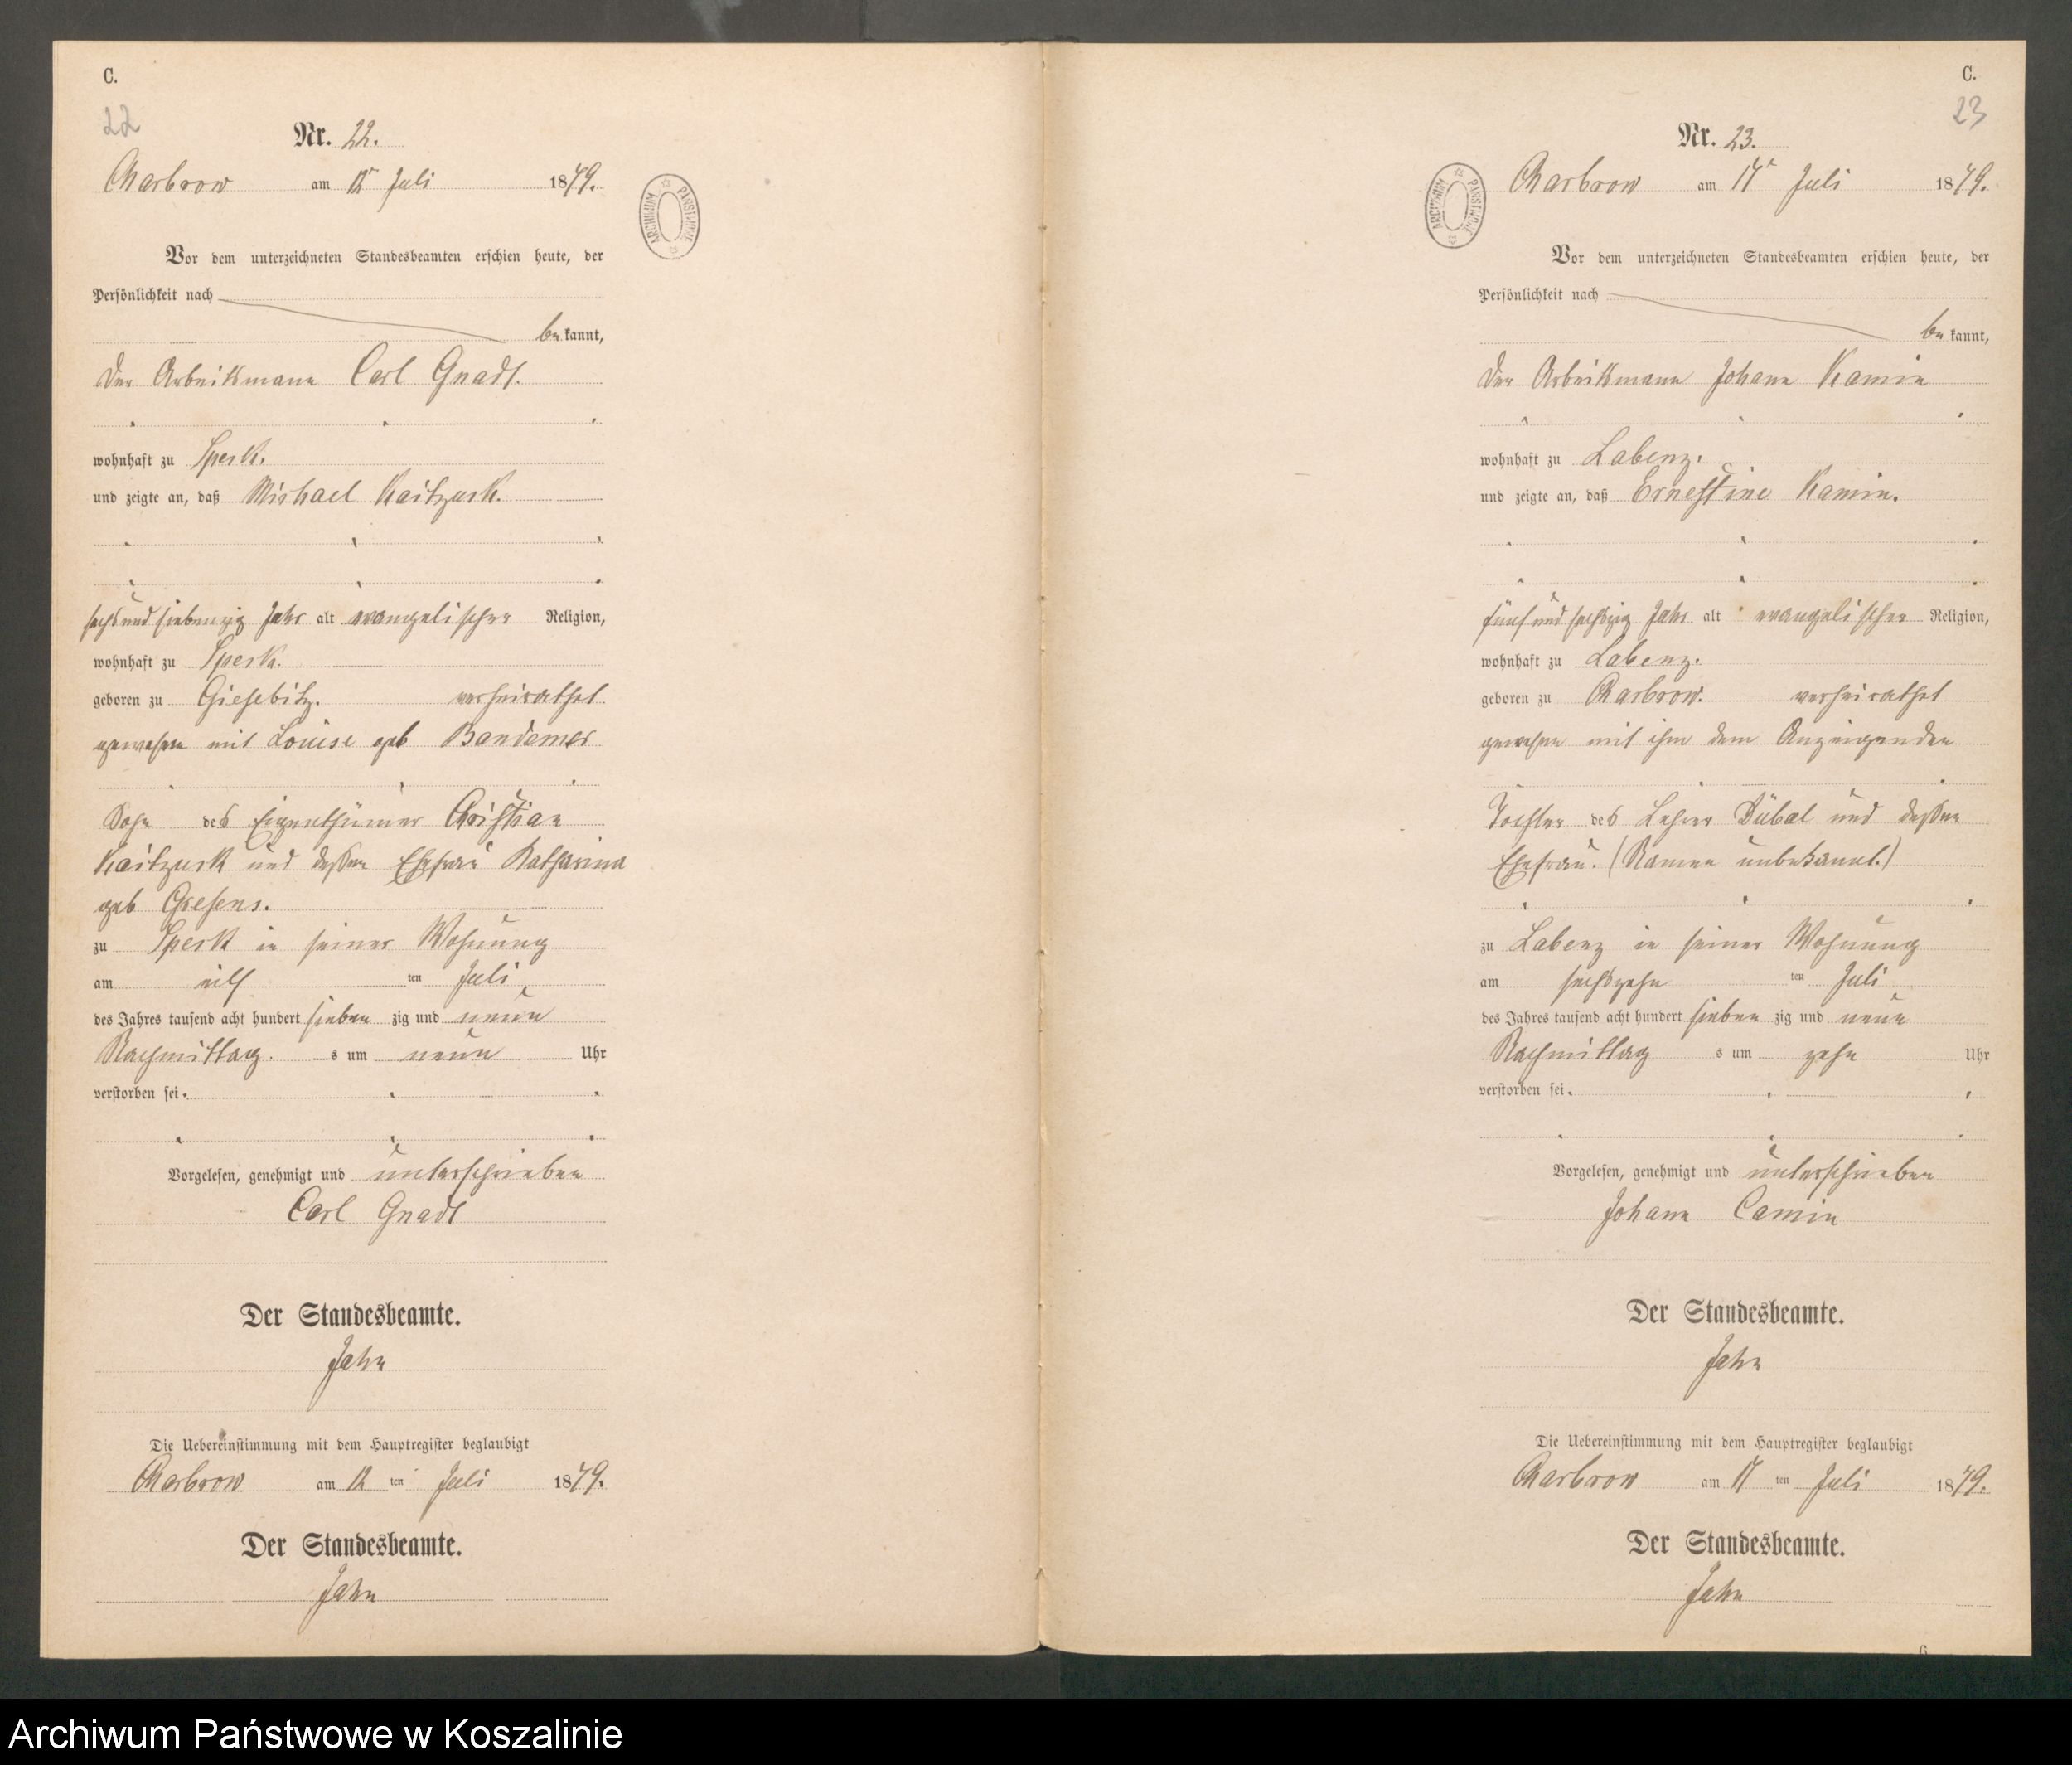 C.
22
Nr. 22.
Charbrow am 12ᵗ Juli 1879.
ARCHIWUM PAŃSTWOWE
Vor dem unterzeichneten Standesbeamten erschien heute, der
Persönlichkeit nach
be kannt,
der Arbeitsmann Carl Gnadt.
wohnhaft zu Speck.
und zeigte an, daß Michael Kaitzuck.
sechsundsiebenzig Jahr alt evangelischer Religion,
wohnhaft zu Speck.
geboren zu Giesebitz. verheirathet
gewesen mit Louise geb Bandemer
Sohn des Eigenthümer Christian
Kaitzuck und dessen Ehefrau Katharina
geb Gresens.
zu Speck in seiner Wohnung
am eilf ten Juli
des Jahres tausend acht hundert sieben zig und neun
Nachmittag s um neun Uhr
verstorben sei.
Vorgelesen, genehmigt und unterschrieben
Carl Gnadt
Der Standesbeamte.
Jahn
Die Uebereinstimmung mit dem Hauptregister beglaubigt
Charbrow am 12 ten Juli 1879.
Der Standesbeamte.
Jahn
C.
23
Nr. 23.
Charbrow am 17ᵗ Juli 1879.
ARCHIWUM PAŃSTWOWE
Vor dem unterzeichneten Standesbeamten erschien heute, der
Persönlichkeit nach
be kannt,
der Arbeitsmann Johann Kamin
wohnhaft zu Labenz.
und zeigte an, daß Ernestine Kamin.
fünfundsechszig Jahr alt evangelischer Religion,
wohnhaft zu Labenz.
geboren zu Charbrow. verheirathet
gewesen mit ihm dem Anzeigenden
Tochter des Lehrer Dübal und dessen
Ehefrau. (Namen unbekannt.)
zu Labenz in seiner Wohnung
am sechszehn ten Juli
des Jahres tausend acht hundert sieben zig und neun
Nachmittag s um zehn Uhr
verstorben sei.
Vorgelesen, genehmigt und unterschrieben
Johann Camin
Der Standesbeamte.
Jahn
Die Uebereinstimmung mit dem Hauptregister beglaubigt
Charbrow am 17 ten Juli 1879.
Der Standesbeamte.
Jahn
6
Archiwum Państwowe w Koszalinie